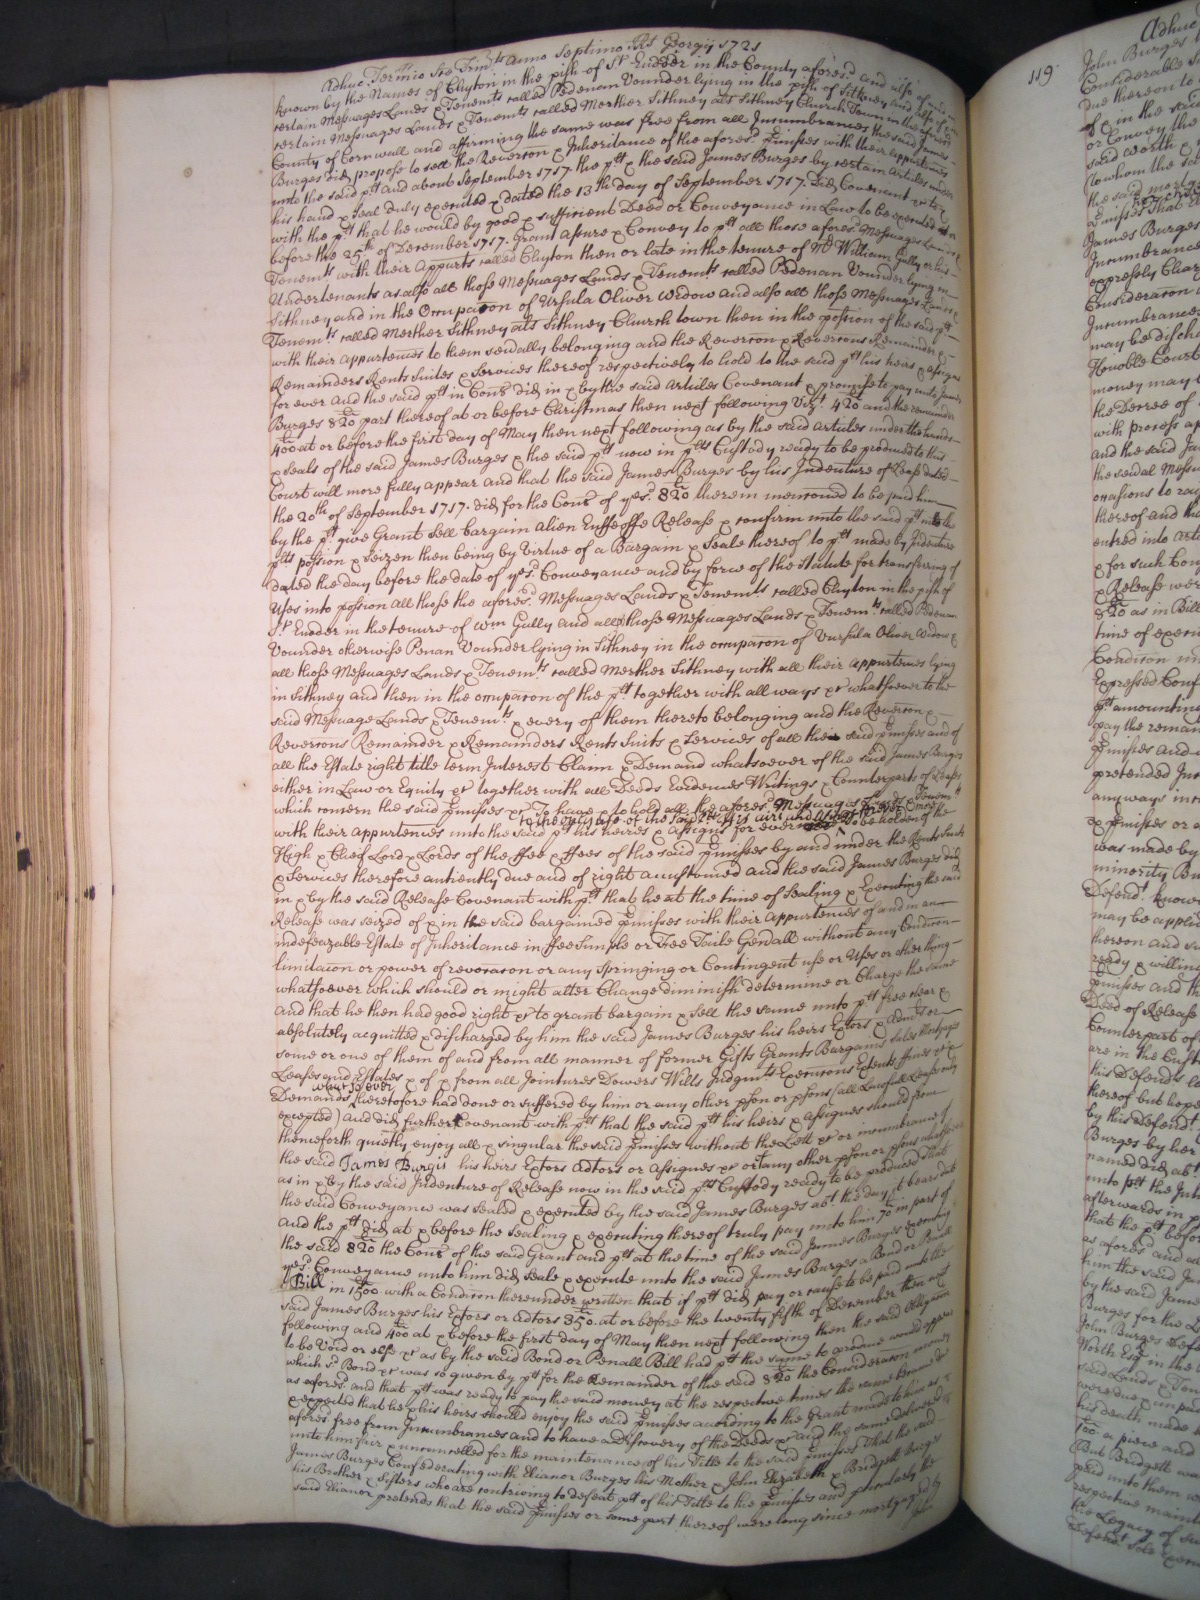 Adhuc Termio Ste Trinitis Anno Septimo Ris Georgij 1721
known by the Names of Clyton in the pish of St Endder in the County afores.d and also of
certain Messuages Lands & Tenemts called Pedenan Vounder lying in the pish of Sithney and also of
certain Messuages Lands & Tenemts called Merther Sithney als Sithney Church Town in the afores.d
County of Cornwall and affirming the same was free from all Incumbrances the said James
Burges did propose to sell the Revercon & Inheritance of the afores.d pmisses with their appurtences
unto the said plt And about September 1717 the plt & the said James Burges by certain Articles under
his hand & Seal duly executed & dated the 13th day of September 1717. Did Covenant
with the plt that he would by good & sufficient Deed or Conveyance in Law to be executed
before the 25th of December 1717. Grant Assure & Convey to plt all those afores.d Messuages Lands &
Tenemts with their Appurts called Clyton then or late in the tenure of Mr William Gully or his
Undertenants as also all those Messuages Lands & Tenemts called Pedenan Vounder lying in
Sithney and in the Occupacon of Ursula Oliver Widow and also all those Messuages Lands &
Tenemts called Merther Sithney als Sithney Church town then in the possion of the said plt
with their appurtences to them sevally belonging and the Revercon & Revercons Remainder &
Remainders Rents Suites & Services thereof respectively to hold to the said plt his heirs & assigns
for ever And the said plt in Cons did in & by the said Articles Covenant & promise to pay unto James
Burges 820 part thereof at or before Christmas then next following Vizt. 420 and the remainder
400 at or before the first day of May then next following as by the said Articles under the hands
& Seals of the said James Burges & the said plt now in plts Custody ready to be produced to this
Court will more fully appear And that the said James Burges by his Indenture of Lease dated
the 20th of September 1717. Did for the Cons of yes.d 820 therein menconed to be paid him
by the plt give Grant Sell bargain Alien Enffeoffe Release & confirm unto the said plt in the
plts possion & Seizen then being by Virtue of a Bargain & Seale thereof to plt made by Indenture
dated the day before the date of yes.d Conveyance and by force of the Statute for transferring of
Uses into possion All those the afores.d Messuages Lands & Tenemts called Clyton in the pish of
St Endder in the tenure of Wm Gully And all those Messuages Lands & Tenemts called Pedenan
Vounder otherwise Penan Vounder lying in Sithney in the occupacon of Vursula Oliver Widow &
all those Messuages Lands & Tenemts called Merther Sithney with all their appurtences lying
in Sithney and then in the occupacon of the plt together with all ways &c whatsoever to the
said Messuage Lands & Tenemts & every of them thereto belonging and the Revercon &
Revercons Remainder & Remainders Rents Suits & Services of all the said pmisses and of
all the Estate right title term Interest Claim & Demand whatsoever of the said James Burges
either in Law or Equity &c together with all Deeds Evidences Writings & Counterparts of Leases
which concern the said pmisses &c To have & to hold all the afores.d Messuages Lands & Tenemts
to the only use of the said plt his heirs and assigns for ever
with their appurtences unto the said plt his heires & assigns for ever to be holden of the
High & Chief Lord & Lords of the ffee & ffees of the said pmisses by and under the Rents Suits
& Services therefore antiently due and of right accustomed And the said James Burges did
in & by the said Release Covenant with plt that he at the time of Sealing & Executing the said
Release was seized of & in the said bargained pmisses with their Appurtences of and in an
indefeazable Estate of Inheritance in ffee Simple or Fee Taile Genall without any Condicon
limitacon or power of revocacon or any Springing or Contingent use or Uses or other thing
whatsoever which should or might alter Change diminish determine or Charge the same
And that he then had good right &c to grant bargain & sell the same unto plt free clear &
absolutely acquitted & discharged by him the said James Burges his heirs Extors & Admrs or
some or one of them of and from all manner of former Gifts Grants Bargains Sales Mortgages
Leases and Estates & of & from all Jointures Dowers Wills Judgmts Executions Extents
whatsoever
Demands heretofore had done or suffered by him or any other pson or psons (all Lawfull Leases only
excepted) And did further Covenant with plt that the said plt his heirs & assignes should from
thenceforth quietly enjoy all & singular the said pmisses without the Lett &c or incumbrance of
the said James Burgis his heirs Extors Adtors or Assignes &c or any other pson or psons whatsoever
as in & by the said Indenture of Release now in the said plts Custody ready to be produced That
the said Conveyance was sealed & executed by the said James Burges abt. the day it bears date
And the plt did at & before the Sealing & executing thereof truly pay unto him 70 in part of
the said 820 the Cons of the said Grant and plt at the time of the said James Burges executing
yes.d Conveyance unto him did Seale & execute unto the said James Burges a Bond or Penall
Bill in 1500 with a Condicon thereunder written that if plt did pay or cause to be paid unto the
said James Burges his Extors or Adtors 350 at or before the twenty fifth of December then next
following and 400 at & before the first day of May then next following then the said Obligacon
to be Void or else &c as by the said Bond or Penall Bill had plt the same to produce would appear
which sd. Bond &c was so given by plt for the Remainder of the said 820 the Consideracon money
as afores.d and that plt was ready to pay the said money at the respective times the same became
& expected that he & his heirs should enjoy the said pmisses according to the Grant made to him as
afores.d free from Incumbrances and to have a Discovery of the Deeds &c and the same delivered
unto him fair & uncancelled for the maintenance of his Title to the said pmisses That the said
James Burges Confederating with Elianor Burges his Mother & John Elizabeth & Bridgett Burges
his Brother & Sisters who are contriving to defeat plt of his Title to the pmisses and pticularly the
said Elianor pretends that the said pmisses or some part thereof were long since mortgaged by
John
119
Adhuc
John Burges
Considerable
due thereon to
& in the said
or Convey the
said worth &
to whom the said
the said mortga
pmisses That
James Burges
Incumbrance
expressly Char
Consideracon
Incumbrances
may be disch
Honoble Court
money may
the Decree of
with process
and the said Ja
the sevall Messu
occasions to
thereof and
entred into Arti
& for such Con
& Release were
820 as in Bill
time of execu
Condicon
Expressed Conf
plt amounting
pay the remain
pmisses and
pretended
any ways in
&c pmisses or
was made by
minority Bu
Defendt. know
may be applic
thereon and
ready & willing
pmisses and
Deed of Release
Counterpart of
are in the Cust
this Defendt
thereof but hope
by this Defendt.
Burges by her
named did abt
unto plt the
afterwards in
that the plt befor
as afores.d and
him the said Ja
by the said James
Burges for the
John Burges
North Esq in the
said Lands & Ten
were due & unpaid
his death made
100 a piece and
But Bridgett was
paid unto them
respective main
the Legacy of
Defendt sole Execu